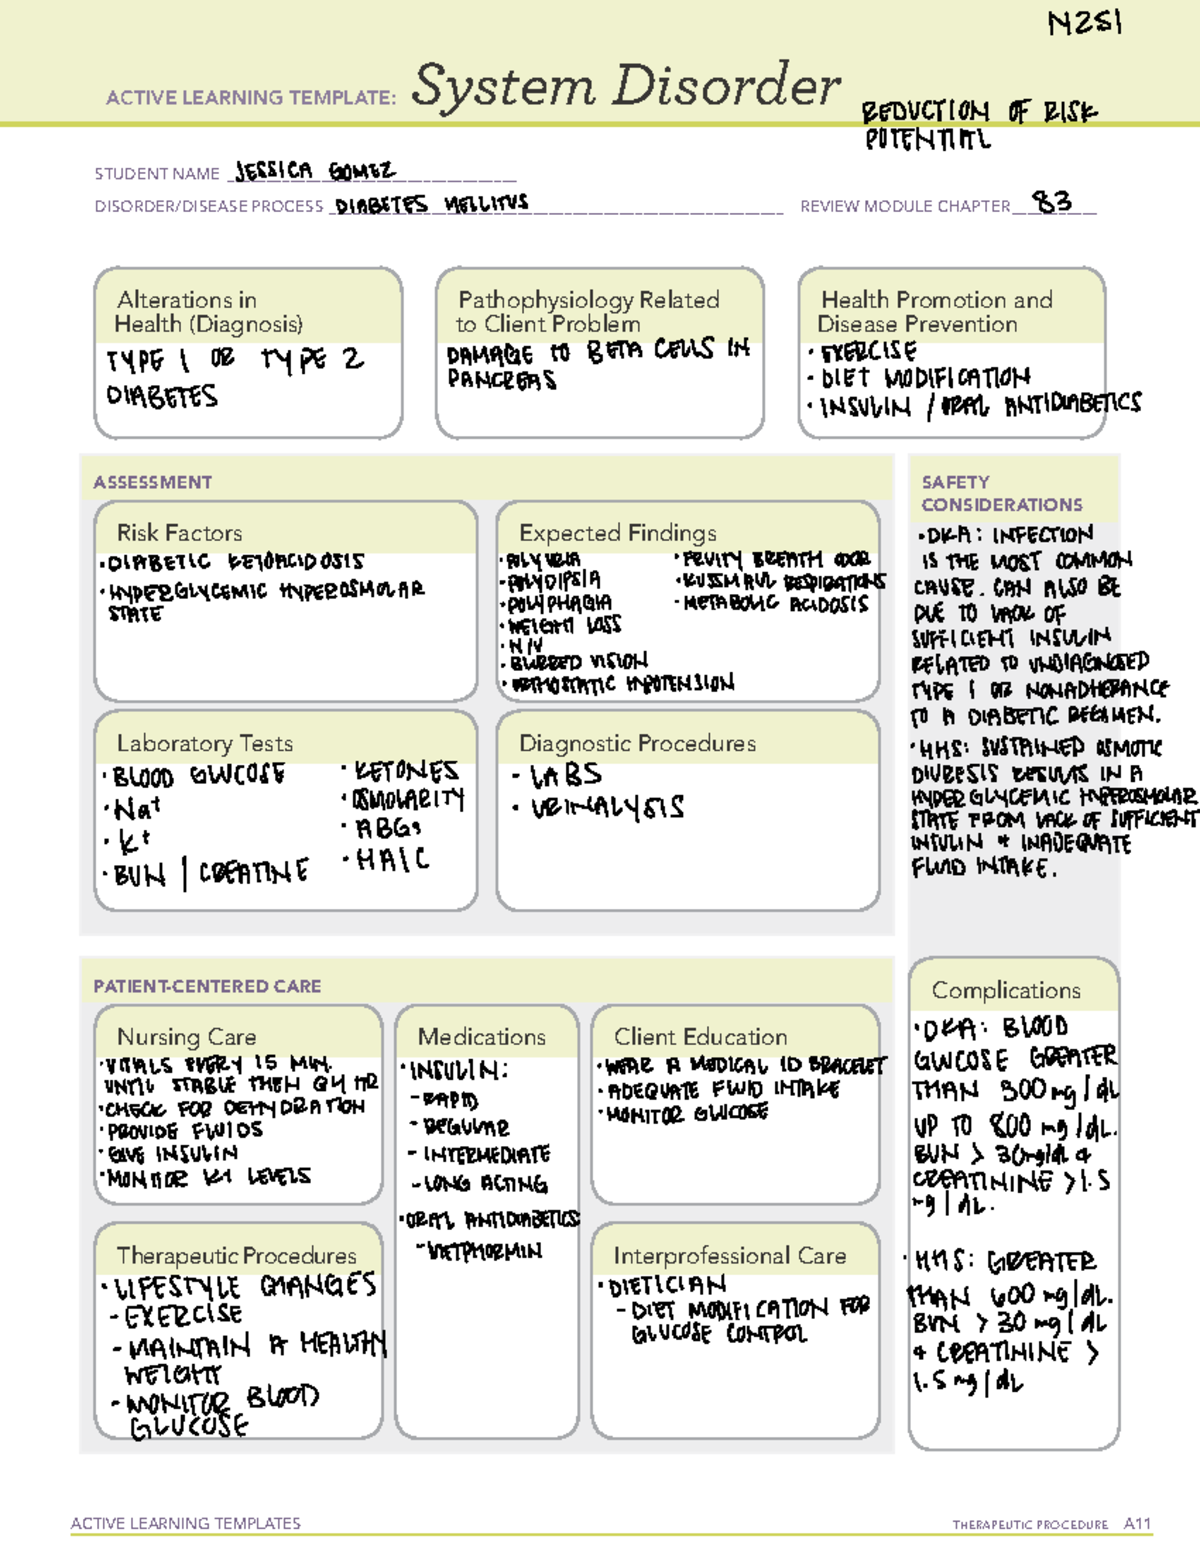 N251
ACTIVE LEARNING TEMPLATE: System Disorder
REDUCTION OF RISK
POTENTIAL
STUDENT NAME JESSICA GOMEZ
DISORDER/DISEASE PROCESS DIABETES MELLITUS REVIEW MODULE CHAPTER 83
Alterations in
Health (Diagnosis)
TYPE 1 OR TYPE 2
DIABETES
Pathophysiology Related
to Client Problem
DAMAGE TO BETA CELLS IN
PANCREAS
Health Promotion and
Disease Prevention
· EXERCISE
· DIET MODIFICATION
· INSULIN / ORAL ANTIDIABETICS
ASSESSMENT
Risk Factors
· DIABETIC KETOACIDOSIS
· HYPERGLYCEMIC HYPEROSMOLAR
STATE
Expected Findings
· POLYURIA
· POLYDIPSIA
· POLYPHAGIA
· WEIGHT LOSS
· N/V
· BLURRED VISION
· ORTHOSTATIC HYPOTENSION
· FRUITY BREATH ODOR
· KUSSMAUL RESPIRATIONS
· METABOLIC ACIDOSIS
Laboratory Tests
· BLOOD GLUCOSE
· Na+
· K+
· BUN | CREATINE
· KETONES
· OSMOLARITY
· ABGs
· HA1C
Diagnostic Procedures
- LABS
· URINALYSIS
SAFETY
CONSIDERATIONS
· DKA: INFECTION
IS THE MOST COMMON
CAUSE. CAN ALSO BE
DUE TO LACK OF
SUFFICIENT INSULIN
RELATED TO UNDIAGNOSED
TYPE 1 OR NONADHERANCE
TO A DIABETIC REGIMEN.
· HHS: SUSTAINED OSMOTIC
DIURESIS RESULTS IN A
HYPERGLYCEMIC HYPEROSMOLAR
STATE FROM LACK OF SUFFICIENT
INSULIN + INADEQUATE
FLUID INTAKE.
PATIENT-CENTERED CARE
Nursing Care
· VITALS EVERY 15 MIN.
UNTIL STABLE THEN Q4 HR
· CHECK FOR DEHYDRATION
· PROVIDE FLUIDS
· GIVE INSULIN
· MONITOR K+ LEVELS
Medications
· INSULIN:
- RAPID
- REGULAR
- INTERMEDIATE
- LONG ACTING
· ORAL ANTIDIABETICS
- METFHORMIN
Client Education
· WEAR A MEDICAL ID BRACELET
· ADEQUATE FLUID INTAKE
· MONITOR GLUCOSE
Therapeutic Procedures
· LIFESTYLE CHANGES
- EXERCISE
- MAINTAIN A HEALTHY
WEIGHT
- MONITOR BLOOD
GLUCOSE
Interprofessional Care
· DIETICIAN
- DIET MODIFICATION FOR
GLUCOSE CONTROL
Complications
· DKA: BLOOD
GLUCOSE GREATER
THAN 300 mg/dL
UP TO 800 mg/dL.
BUN > 30mg/dL +
CREATININE >1.5
mg/dL.
· HHS: GREATER
THAN 600 mg/dL.
BUN > 30 mg/dL
+ CREATININE >
1.5 mg/dL
ACTIVE LEARNING TEMPLATES
THERAPEUTIC PROCEDURE A11